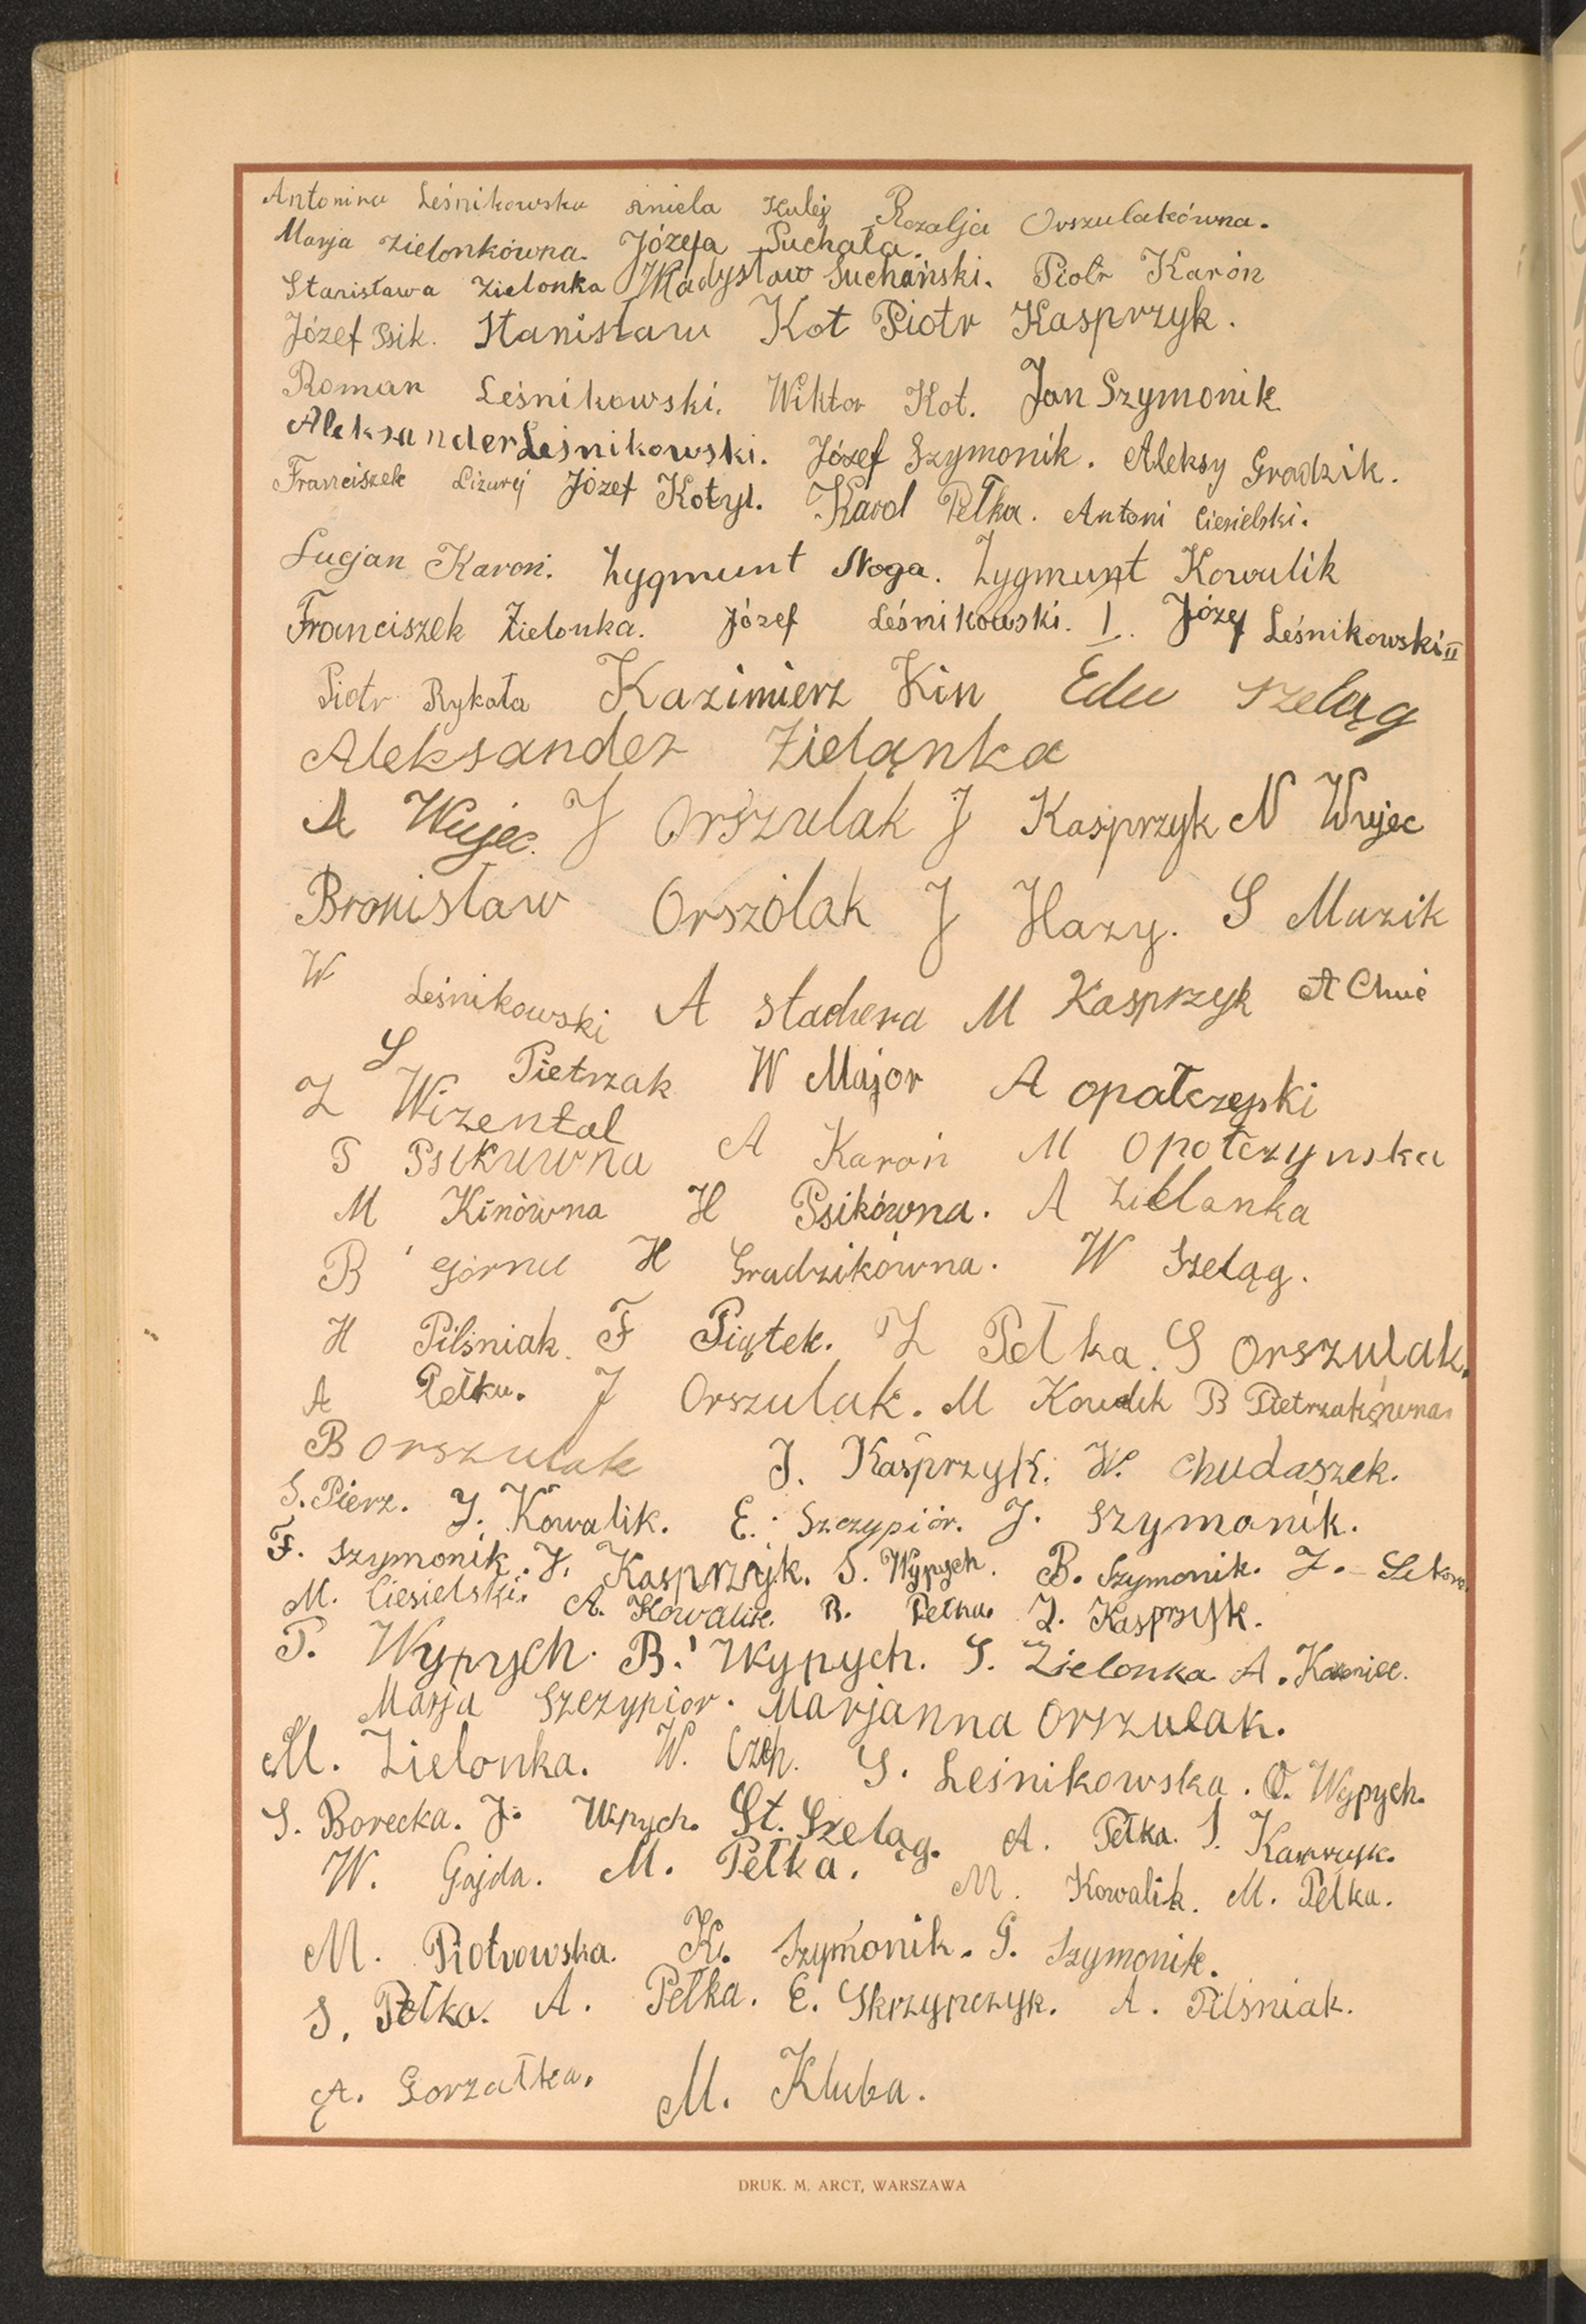 Antonina Leśnikowska Aniela Kulej Rozalja Orszulakówna.
Marja Zielonkówna. Józefa Puchała.
Stanisława Zielonka Władysław Suchański. Piotr Karoń
Józef Psik. Stanisław Kot Piotr Kasprzyk.
Roman Leśnikowski. Wiktor Kot. Jan Szymonik
Aleksander Leśnikowski. Józef Szymonik. Aleksy Gradzik.
Franciszek Liżurej Józef Kotyl. Karol Pełka. Antoni Ciesielski.
Lucjan Karoń. Zygmunt Noga. Zygmunt Kowalik
Franciszek Zielonka. Józef Leśnikowski. I. Józef Leśnikowski II
Piotr Rykała Kazimierz Kin Edw Szeląg
Aleksander Zieląnka
A Wujec. J Orszulak J Kasprzyk N Wujec
Bronisław Orszólak J Hazy. S Muzik
W Leśnikowski A Stachera M Kasprzyk A Chuć
S Pietrzak W Major A Opałczyński
Z Wizental
P Psikuwna A Karoń M Opołczynska
M Kinówna H Psikówna. A Zielanka
B Górna H Gradzikówna. W Szeląg.
H Pilśniak. F Piątek. Z Pełka. S Orszulak.
A Pełka. J Orszulak. M Kowalik B Pietrzakówna
B Orszulak J. Kasprzyk. W. Chudaszek.
S. Pierz. J. Kowalik. E. Szczypiór. J. Szymonik.
F. Szymonik. J. Kasprzyk. S. Wypych. B. Szymonik. Z.
M. Ciesielski. A. Kowalik. R. Pełka. Z. Kasprzyk.
P. Wypych. B. Wypych. S. Zielonka A.
Marja Szczypior. Marjanna Orszulak.
M. Zielonka. W. Czeh. S. Leśnikowska. O. Wypych.
S. Borecka. J. Wypych. St. Szeląg. A. Pełka. S.
W. Gajda. M. Pełka. M. Kowalik. M. Pełka.
M. Piotrowska. K. Szymonik. G. Szymonik.
S. Pełka. A. Pełka. E. Skrzypczyk. A. Pilśniak.
A. Gorzałka. M. Kluba.
DRUK. M. ARCT, WARSZAWA